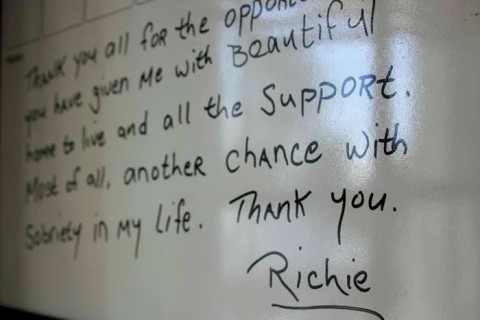 Thank you all for the
you have given me with Beautiful
home to live and all the Support.
Most of all, another chance with
Sobriety in my life. Thank you.
Richie